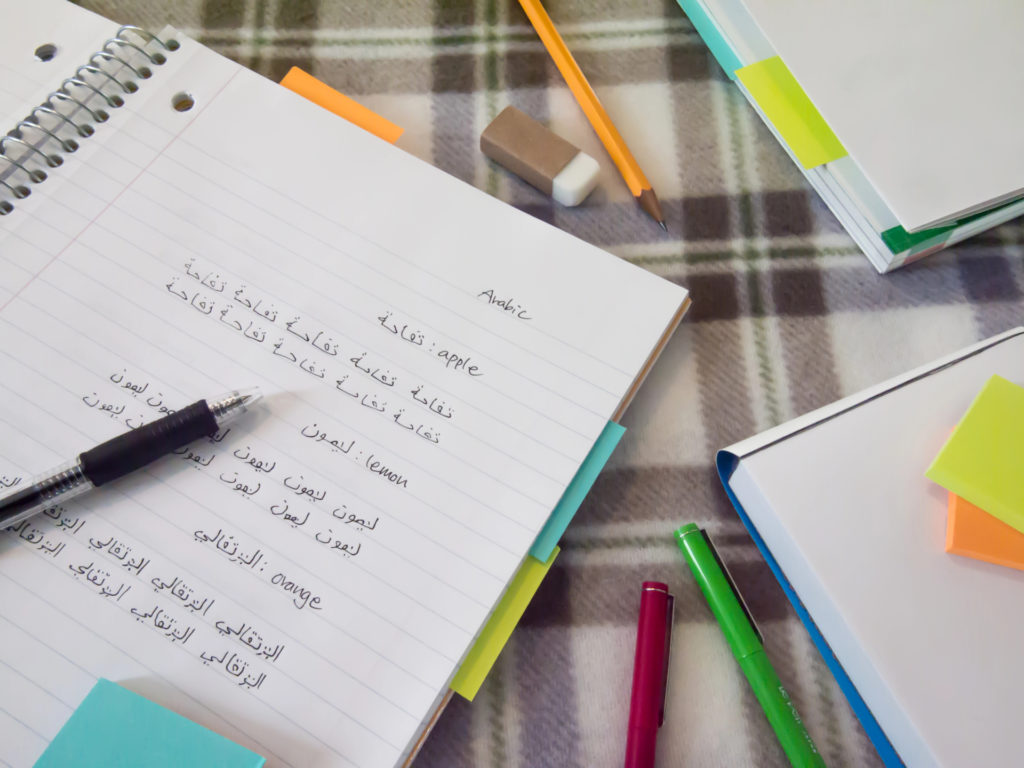 Arabic
تفاحة : apple
تفاحة تفاحة تفاحة تفاحة تفاحة
تفاحة تفاحة تفاحة تفاحة تفاحة
ليمون : lemon
ليمون ليمون ليمون ليمون ليمون
ليمون ليمون ليمون ليمون ليمون
البرتقالي : orange
البرتقالي البرتقالي البرتقالي البرتقالي
البرتقالي البرتقالي البرتقالي البرتقالي